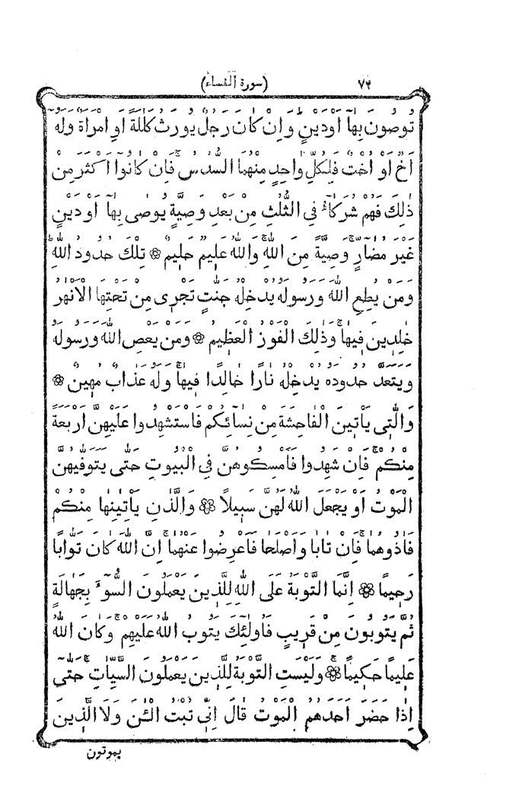 ٧٩ (سورة النساء)
تُوصُونَ بِهَآ اَوْدَيْنٍ وَاِنْ كَانَ رَجُلٌ يُورَثُ كَلٰلَةً اَوِ امْرَاَةٌ وَلَهٗ
اَخٌ اَوْ اُخْتٌ فَلِكُلِّ وَاحِدٍ مِنْهُمَا السُّدُسُ فَاِنْ كَانُوٓا اَكْثَرَ مِنْ
ذٰلِكَ فَهُمْ شُرَكَآءُ فِى الثُّلُثِ مِنْ بَعْدِ وَصِيَّةٍ يُوصٰى بِهَآ اَوْدَيْنٍ
غَيْرَ مُضَآرٍّ وَصِيَّةً مِنَ اللهِ وَاللهُ عَلِيمٌ حَلِيمٌ ۞ تِلْكَ حُدُودُ اللهِ
وَمَنْ يُطِعِ اللهَ وَرَسُولَهٗ يُدْخِلْهُ جَنّٰتٍ تَجْرِى مِنْ تَحْتِهَا الْاَنْهٰرُ
خٰلِدِينَ فِيهَا وَذٰلِكَ الْفَوْزُ الْعَظِيمُ ۞ وَمَنْ يَعْصِ اللهَ وَرَسُولَهٗ
وَيَتَعَدَّ حُدُودَهٗ يُدْخِلْهُ نَارًا خَالِدًا فِيهَا وَلَهٗ عَذَابٌ مُهِينٌ ۞
وَالّٰتِى يَاْتِينَ الْفَاحِشَةَ مِنْ نِسَآئِكُمْ فَاسْتَشْهِدُوا عَلَيْهِنَّ اَرْبَعَةً
مِنْكُمْ فَاِنْ شَهِدُوا فَاَمْسِكُوهُنَّ فِى الْبُيُوتِ حَتّٰى يَتَوَفّٰيهُنَّ
الْمَوْتُ اَوْ يَجْعَلَ اللهُ لَهُنَّ سَبِيلًا ۞ وَالَّذٰنِ يَاْتِيٰنِهَا مِنْكُمْ
فَاٰذُوهُمَا فَاِنْ تَابَا وَاَصْلَحَا فَاَعْرِضُوا عَنْهُمَا اِنَّ اللهَ كَانَ تَوَّابًا
رَحِيمًا ۞ اِنَّمَا التَّوْبَةُ عَلَى اللهِ لِلَّذِينَ يَعْمَلُونَ السُّوٓءَ بِجَهَالَةٍ
ثُمَّ يَتُوبُونَ مِنْ قَرِيبٍ فَاُولٰٓئِكَ يَتُوبُ اللهُ عَلَيْهِمْ وَكَانَ اللهُ
عَلِيمًا حَكِيمًا ۞ وَلَيْسَتِ التَّوْبَةُ لِلَّذِينَ يَعْمَلُونَ السَّيِّاٰتِ حَتّٰٓى
اِذَا حَضَرَ اَحَدَهُمُ الْمَوْتُ قَالَ اِنِّى تُبْتُ الْـٰٔنَ وَلَا الَّذِينَ
يموتون